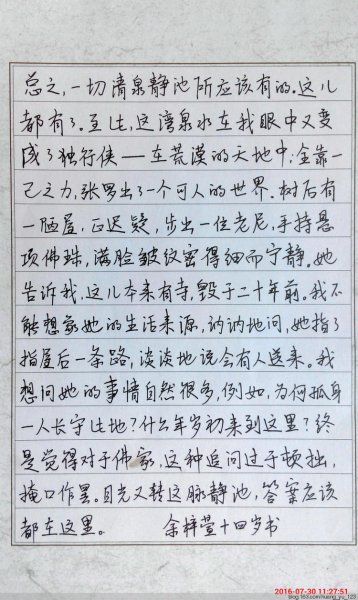 总之,一切清泉静池所应该有的,这儿
都有了。至此,这湾泉水在我眼中又变
成了独行侠——在荒漠的天地中,全靠一
己之力,张罗出了一个可人的世界。树后有
一陋屋,正迟疑,步出一位老尼,手持悬
项佛珠,满脸皱纹密得细而宁静。她
告诉我,这儿本来有寺,毁于二十年前。我不
能想象她的生活来源,讷讷地问,她指了
指屋后一条路,淡淡地说会有人送来。我
想问她的事情自然很多,例如,为何孤身
一人长守此地?什么年岁初来到这里?终
是觉得对于佛家,这种追问过于顿拙,
掩口作罢。目光又转这脉静池,答案应该
都在这里。 余梓萱十四岁书
2016-07-30 11:27:51
blog.163.com/huang_yu_123